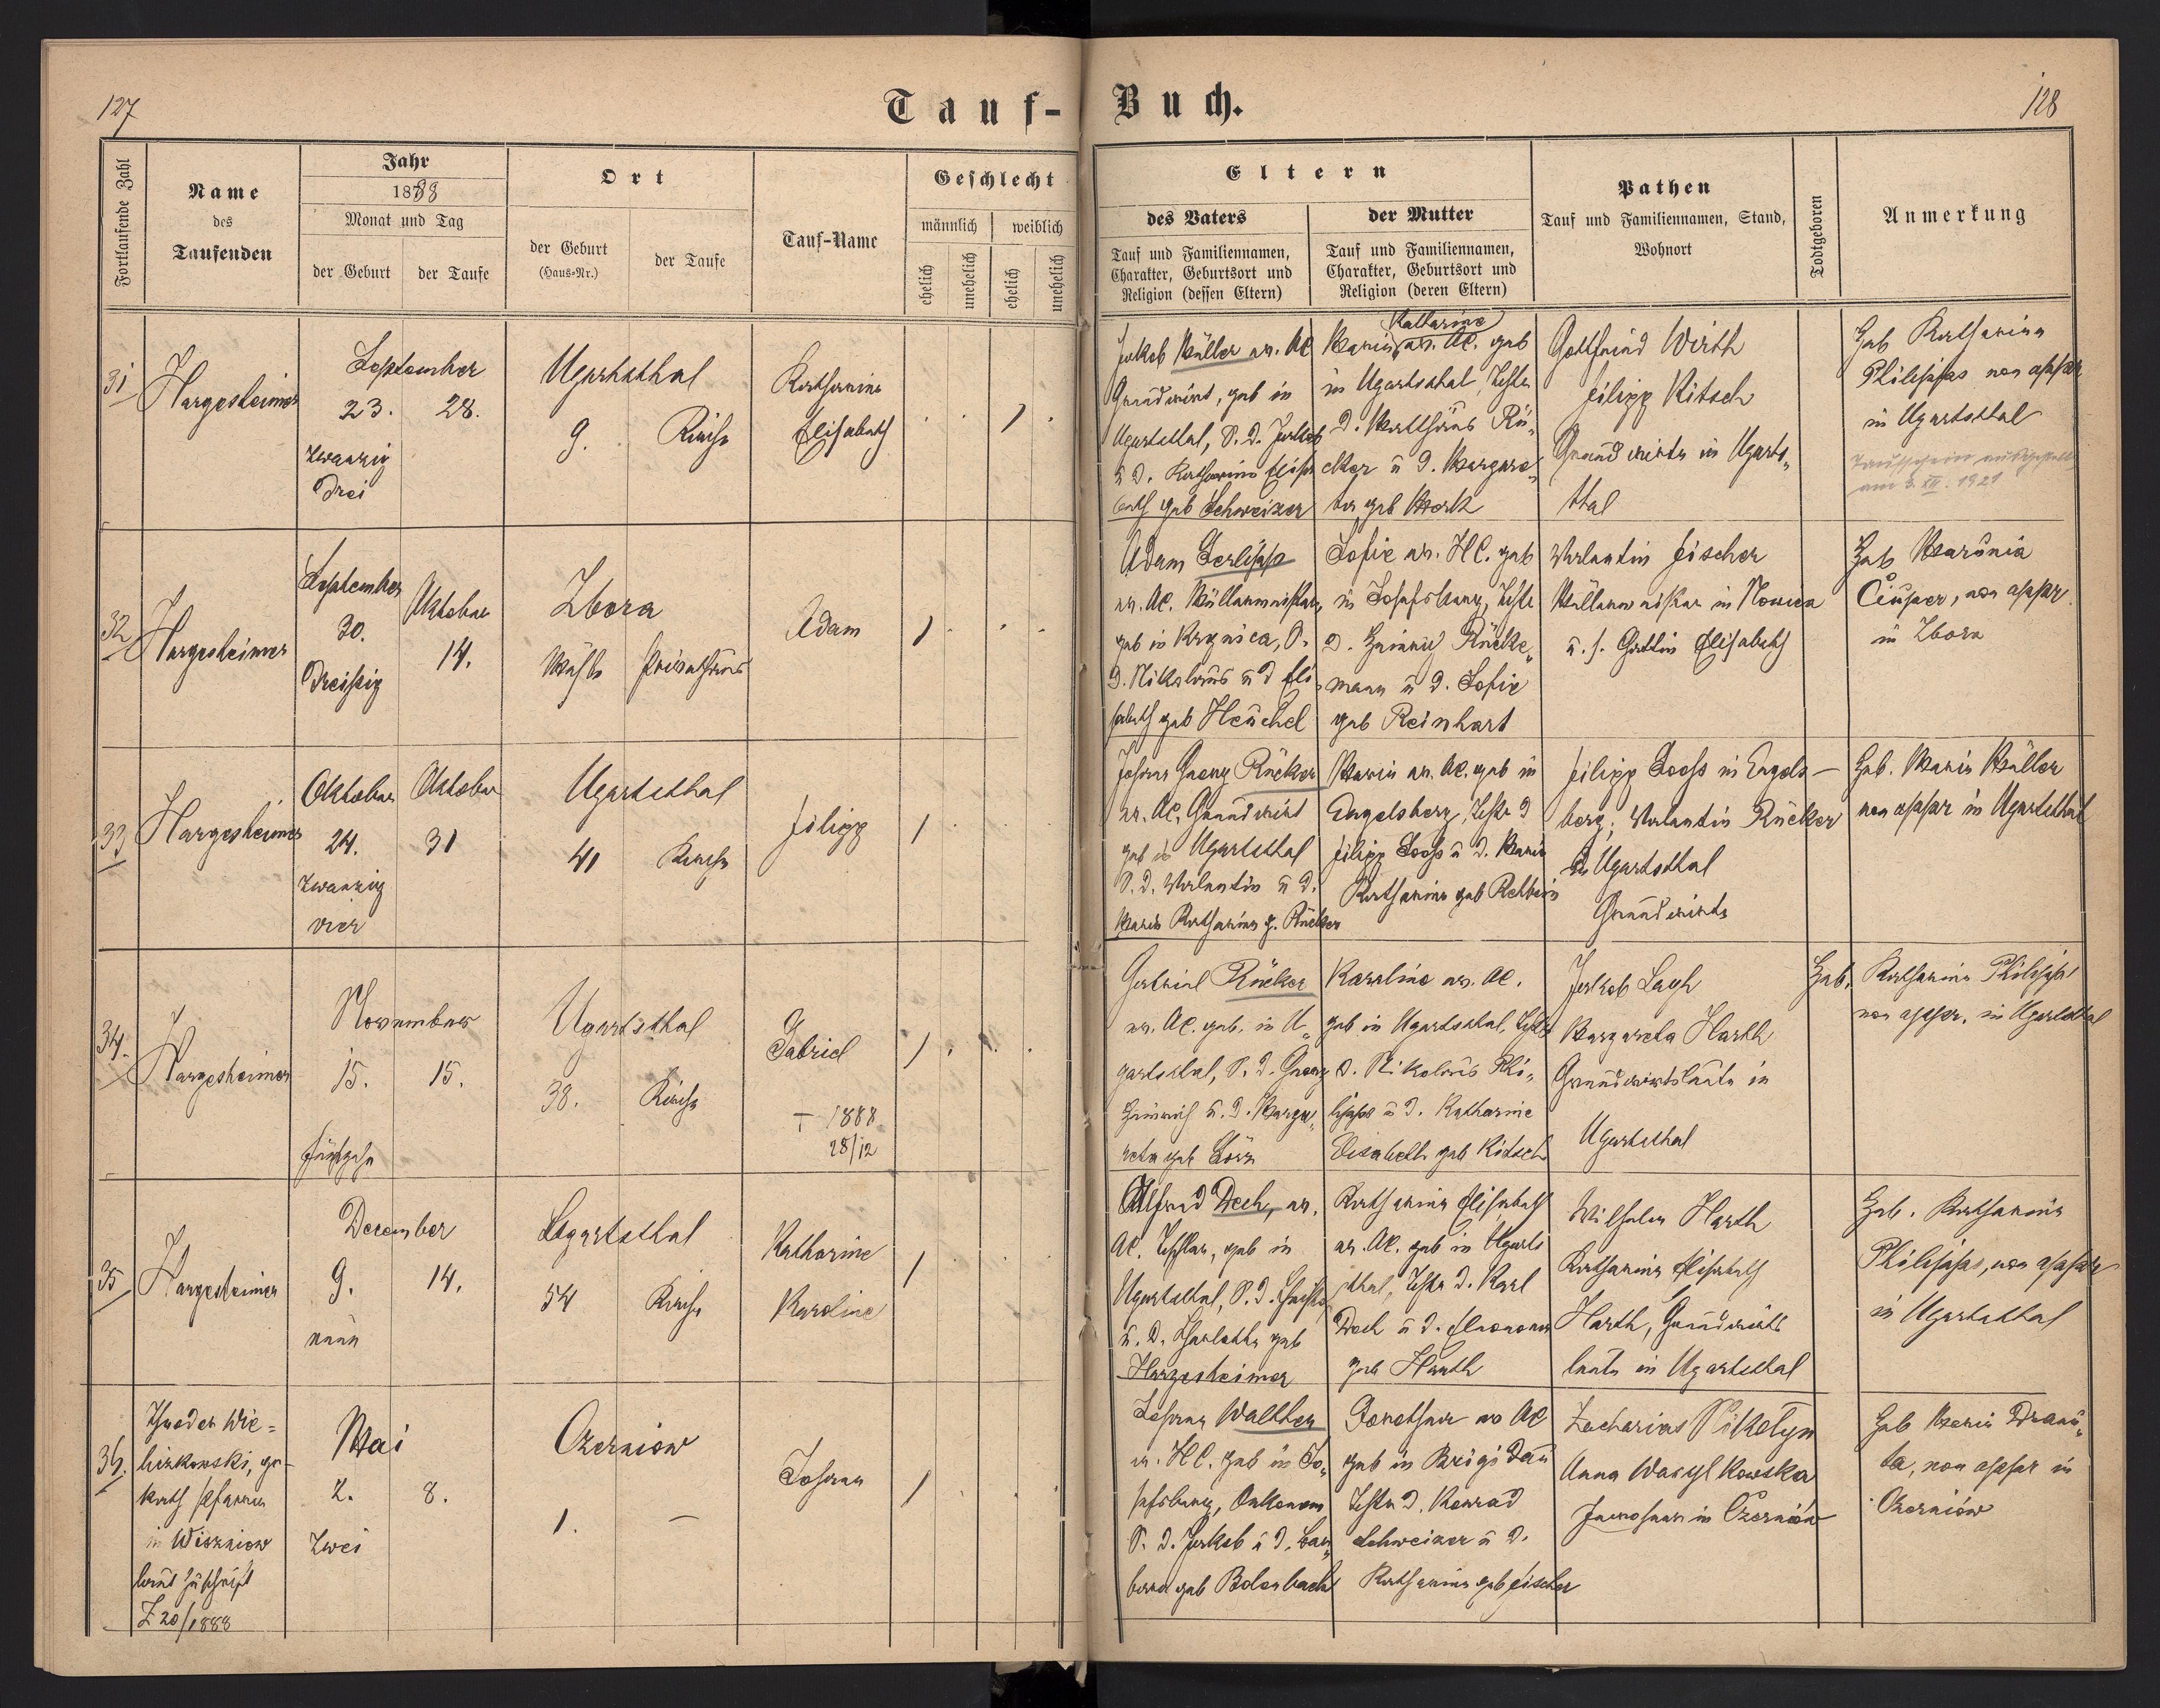 127
Tauf-Buch.
128
Fortlaufende Zahl
Name
des
Taufenden
Jahr
1888
Monat und Tag
der Geburt
der Taufe
Ort
der Geburt
(Haus-Nr.)
der Taufe
Tauf-Name
Geschlecht
männlich
weiblich
ehelich
unehelich
ehelich
unehelich
Eltern
des Vaters
Tauf und Familiennamen,
Charakter, Geburtsort und
Religion (dessen Eltern)
der Mutter
Tauf und Familiennamen,
Charakter, Geburtsort und
Religion (deren Eltern)
Pathen
Tauf und Familiennamen, Stand,
Wohnort
Todtgeboren
Anmerkung
31
Hargesheimer
September
23. 28.
zwanzig
drei
Ugartsthal
9. Kirche
Katharina
Elisabeth
Jakob Müller ev. AC
Grundwirt, geb in
Ugartsthal, S. d. Jakob
u d. Katharina Elisa
beth geb Schweizer
Katharine
Maria ev. AC. geb
in Ugartsthal, Tochter
d. Matthäus Rü„
cker u d. Margare„
ta geb Mork
Gottfried Wirth
Filipp Kitsch
Grundwirte in Ugarts„
thal
Heb Katharina
Philipps non appr
in Ugartsthal
Taufschein ausgestellt
am 3. XII. 1921
32
Hargesheimer
September
30.
Dreißig
Oktober
14.
Zbora
Mühle
Privathaus
Adam
1
Adam Gerlipp
ev. AC. Müllermeister,
geb in Krynica, S.
d. Nikolaus u d Eli„
sabeth geb Heuchel
Sofie ev. HC. geb
in Josefsberg, Tochter
d. Heinrich Rücke„
mann u d. Sofie
geb Reinhart
Valentin Fischer
Müllermeister in Nowica
u. s. Gattin Elisabeth
Heb Marunia
Ciuper, non appr.
in Zbora
33
Hargesheimer
Oktober
24.
zwanzig
vier
Oktober
31
Ugartsthal
41 Kirche
Filipp
1
Johann Georg Rücker
ev. AC, Grundwirt
geb in Ugartsthal
S. d. Valentin u d.
Maria Katharina g. Rücker
Maria ev. AC. geb in
Engelsberg, Tocht d
Filipp Looss u d. Maria
Katharina geb Rehbein
Filipp Looss in Engels—
berg; Valentin Rücker
in Ugartsthal
Grundwirte
Heb. Maria Müller
non appr in Ugartsthal
34.
Hargesheimer
November
15. 15.
fünfzehn
Ugartsthal
38. Kirche
Gabriel
† 1888
28/12
1
Gabriel Rücker
ev. AC. geb. in U„
gartsthal, S. d. Georg
Heinrich u. d. Marga„
reta geb Lörz
Karoline ev. AC.
geb in Ugartsthal, Tochter
d. Nikolaus Phi„
lipps u d. Katharine
Elisabeth geb Kitsch
Jakob Lagh
Margareta Harth
Grundwirtsleute in
Ugartsthal
Heb. Katharina Philipps
non appr. in Ugartsthal
35
Hargesheimer
December
9. 14.
neun
Ugartsthal
54 Kirche
Katharine
Karoline
1
Alfred Dech, ev.
AC. Tischler, geb in
Ugartsthal, S. d.
u. d. Charlotte geb
Hargesheimer
Katharina Elisabeth
ev. AC. geb in Ugarts
thal, Tocht d. Karl
Dech u d. Eleonora
geb Harth
Wilhelm Harth
Katharina Elisabeth
Harth, Grundwirts
leute in Ugartsthal
Heb. Katharina
Philipps, non appr
in Ugartsthal
36.
Theodor Wie=
liczkowski, gr-
kath Pfarrer
in Wiszniow
laut Zuschrift
Z 20/1888
Mai
2. 8.
Zwei
Czerniow
1. —
Johann
1
Johann Walther
ev. HC. geb in Jo„
sefsberg, Oekonom
S. d. Jakob u d. Bar„
bara geb Bolenbach
Dorothea ev AC
geb in Brigidau
Tocht d. Konrad
Schweizer u d.
Katharina geb Fischer
Zacharias Nikolyn
Anna Wasylkowska
in Czerniów
Heb Maria Dranu„
ta, non appr in
Czerniów